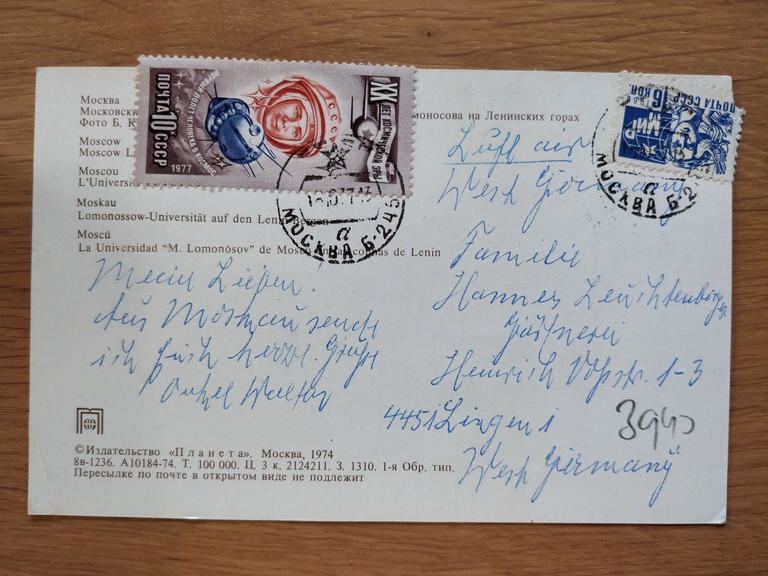 Москва
Московски
моносова на Ленинских горах
Фото Б. К
Moscow
Moscow L
Moscou
L'Univers
Moskau
Lomonossow-Universität auf den Lenin-Bergen
Moscú
La Universidad "M. Lomonósov" de Moscú en las colinas de Lenin
ПОЧТА 10К СССР
1977
ПЕРВЫЙ ПОЛЕТ ЧЕЛОВЕКА В КОСМОС
XX ЛЕТ КОСМИЧЕСКОЙ ЭРЫ
СССР
МОСКВА Б-245
а
ПОЧТА СССР
6 КОП.
МИР
МОСКВА Б-2
а
Luft air
West Germany
Familie
Hannes Leuchtenborger
Gärtnerei
Heinrich Voßstr. 1-3
4451 Lingen 1
West Germany
Meine Lieben!
Aus Moskau sende
ich Euch herzl. Grüße
Onkel Walter
© Издательство «Планета». Москва, 1974
8в-1236. А10184-74. Т. 100 000. Ц. 3 к. 2124211. З. 1310. 1-я Обр. тип.
Пересылке по почте в открытом виде не подлежит